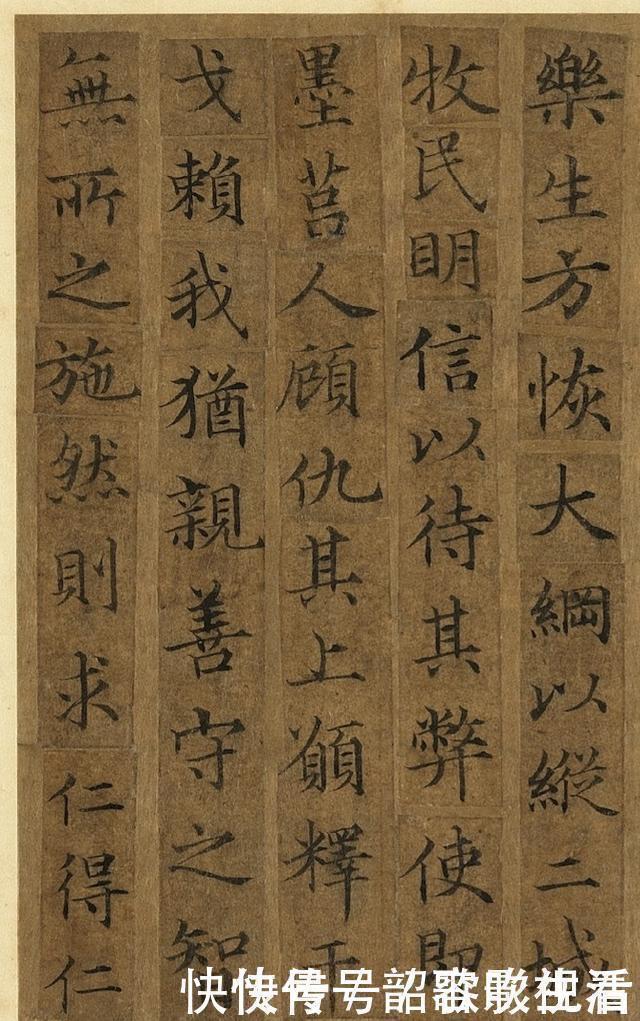 樂生方恢大綱以縱二城
牧民明信以待其弊使即
墨莒人顧仇其上願釋干
戈賴我猶親善守之智
無所之施然則求仁得仁